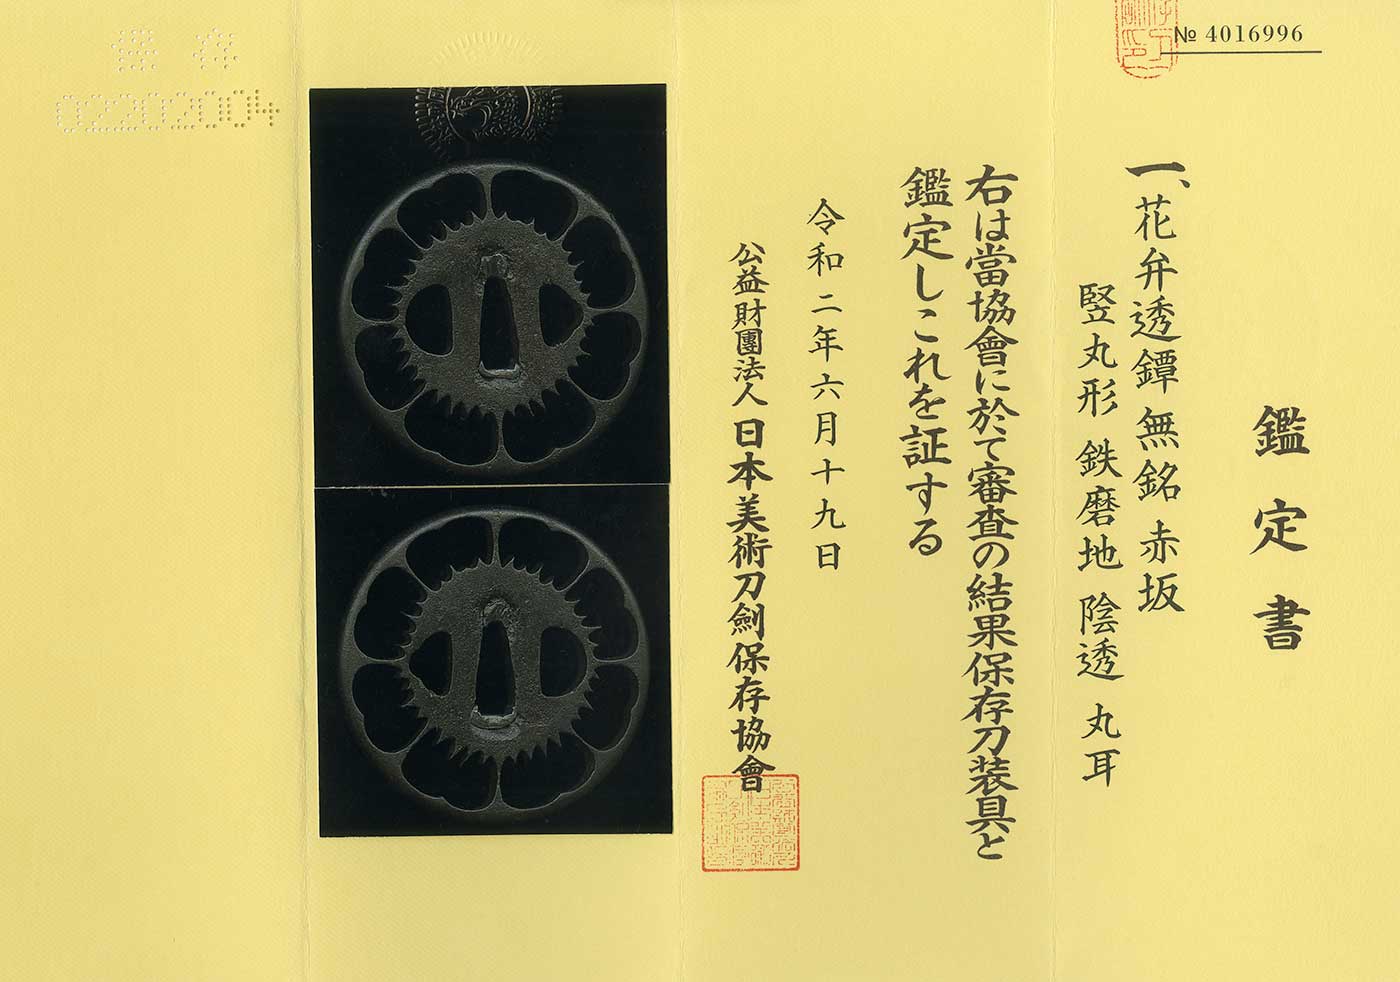 № 4016996
鑑定書
一、花弁透鐔 無銘 赤坂
竪丸形 鉄磨地 陰透 丸耳
右は當協會に於て審査の結果保存刀装具と
鑑定しこれを証する
令和二年六月十九日
公益財團法人 日本美術刀劍保存協會
保存
02202004